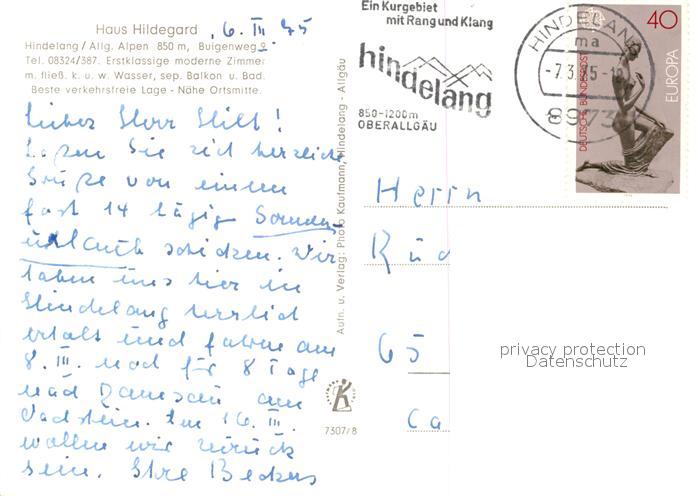 Haus Hildegard
6. III 75
Hindelang/Allg. Alpen 850 m, Buigenweg 9
Tel. 08324/387. Erstklassige moderne Zimmer
m. fließ. k. u. w. Wasser, sep. Balkon u. Bad.
Beste verkehrsfreie Lage - Nähe Ortsmitte.
Lieber Herr Hilt!
Lassen Sie sich herzliche
Grüße von einem
fast 14 tägig Sonnen-
urlaub schicken. Wir
haben uns hier in
Hindelang herrlich
erholt und fahren am
8. III. noch für 8 Tage
nach Ramsau am
Dachstein. Am 16. III.
wollen wir zurück
sein. Ihre Beckers
Aufn. u. Verlag: Photo Kaufmann, Hindelang - Allgäu
K
7307/8
Ein Kurgebiet
mit Rang und Klang
hindelang
850-1200m
OBERALLGÄU
HINDELANG
ma
-7.3.75-1
8973
40
EUROPA
DEUTSCHE BUNDESPOST
Herrn
Rüd
65
Ca
privacy protection
Datenschutz